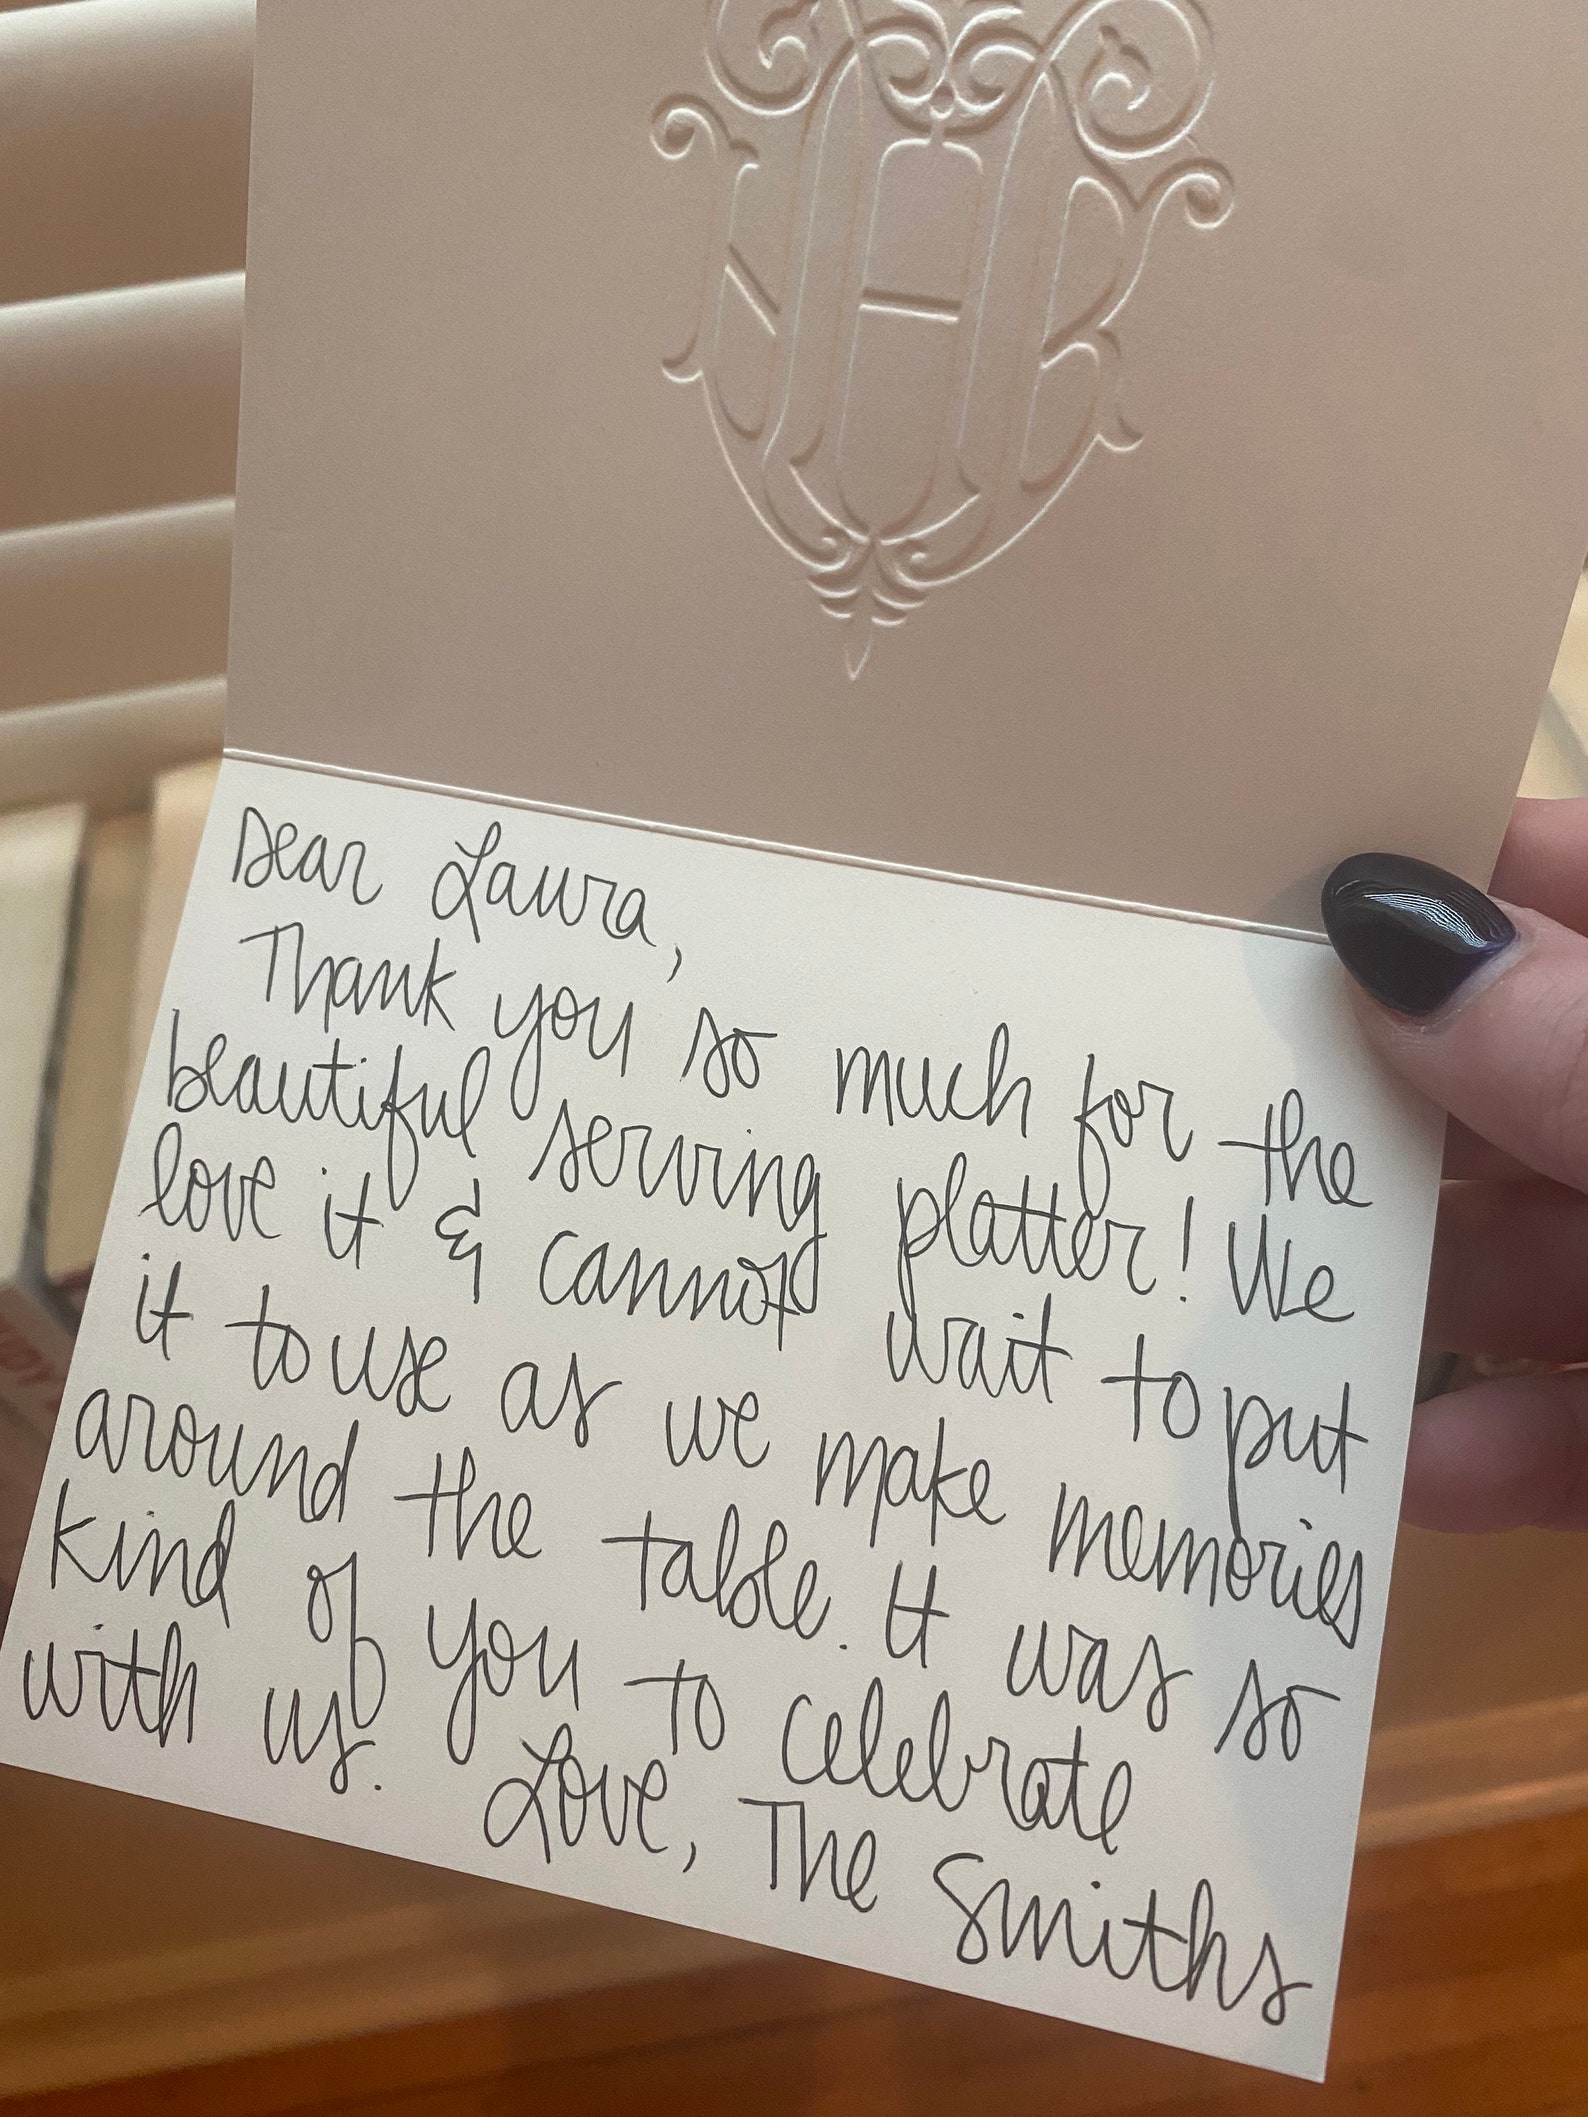 Dear Laura,
Thank you so much for the
beautiful serving platter! We
love it & cannot wait to put
it to use as we make memories
around the table. It was so
kind of you to celebrate
with us.
Love, The Smiths